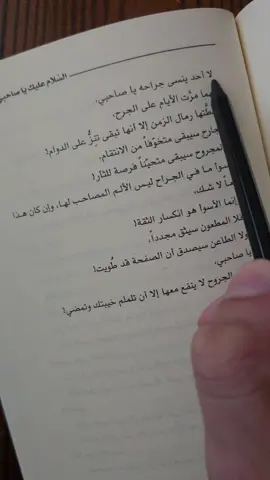 السلام عليك يا صاحبي
لا أحد ينسى جراحه يا صاحبي،
مرَّت الأيام على الجرح،
رمال الزمن إلا أنها تبقى تنِزُّ على الدوام!
سيبقى متخوّفاً من الانتقام،
سيبقى متحيّناً فرصة للثأر!
ما في الجراح ليس الألم المصاحب لها، وإن كان هذا
لا شك،
الأسوأ هو انكسار الثقة!
المطعون سيثق مجدداً،
الطاعن سيصدق أن الصفحة قد طُويت!
يا صاحبي،
الجروح لا ينفع معها إلا أن تلملم خيبتك وتمضي!